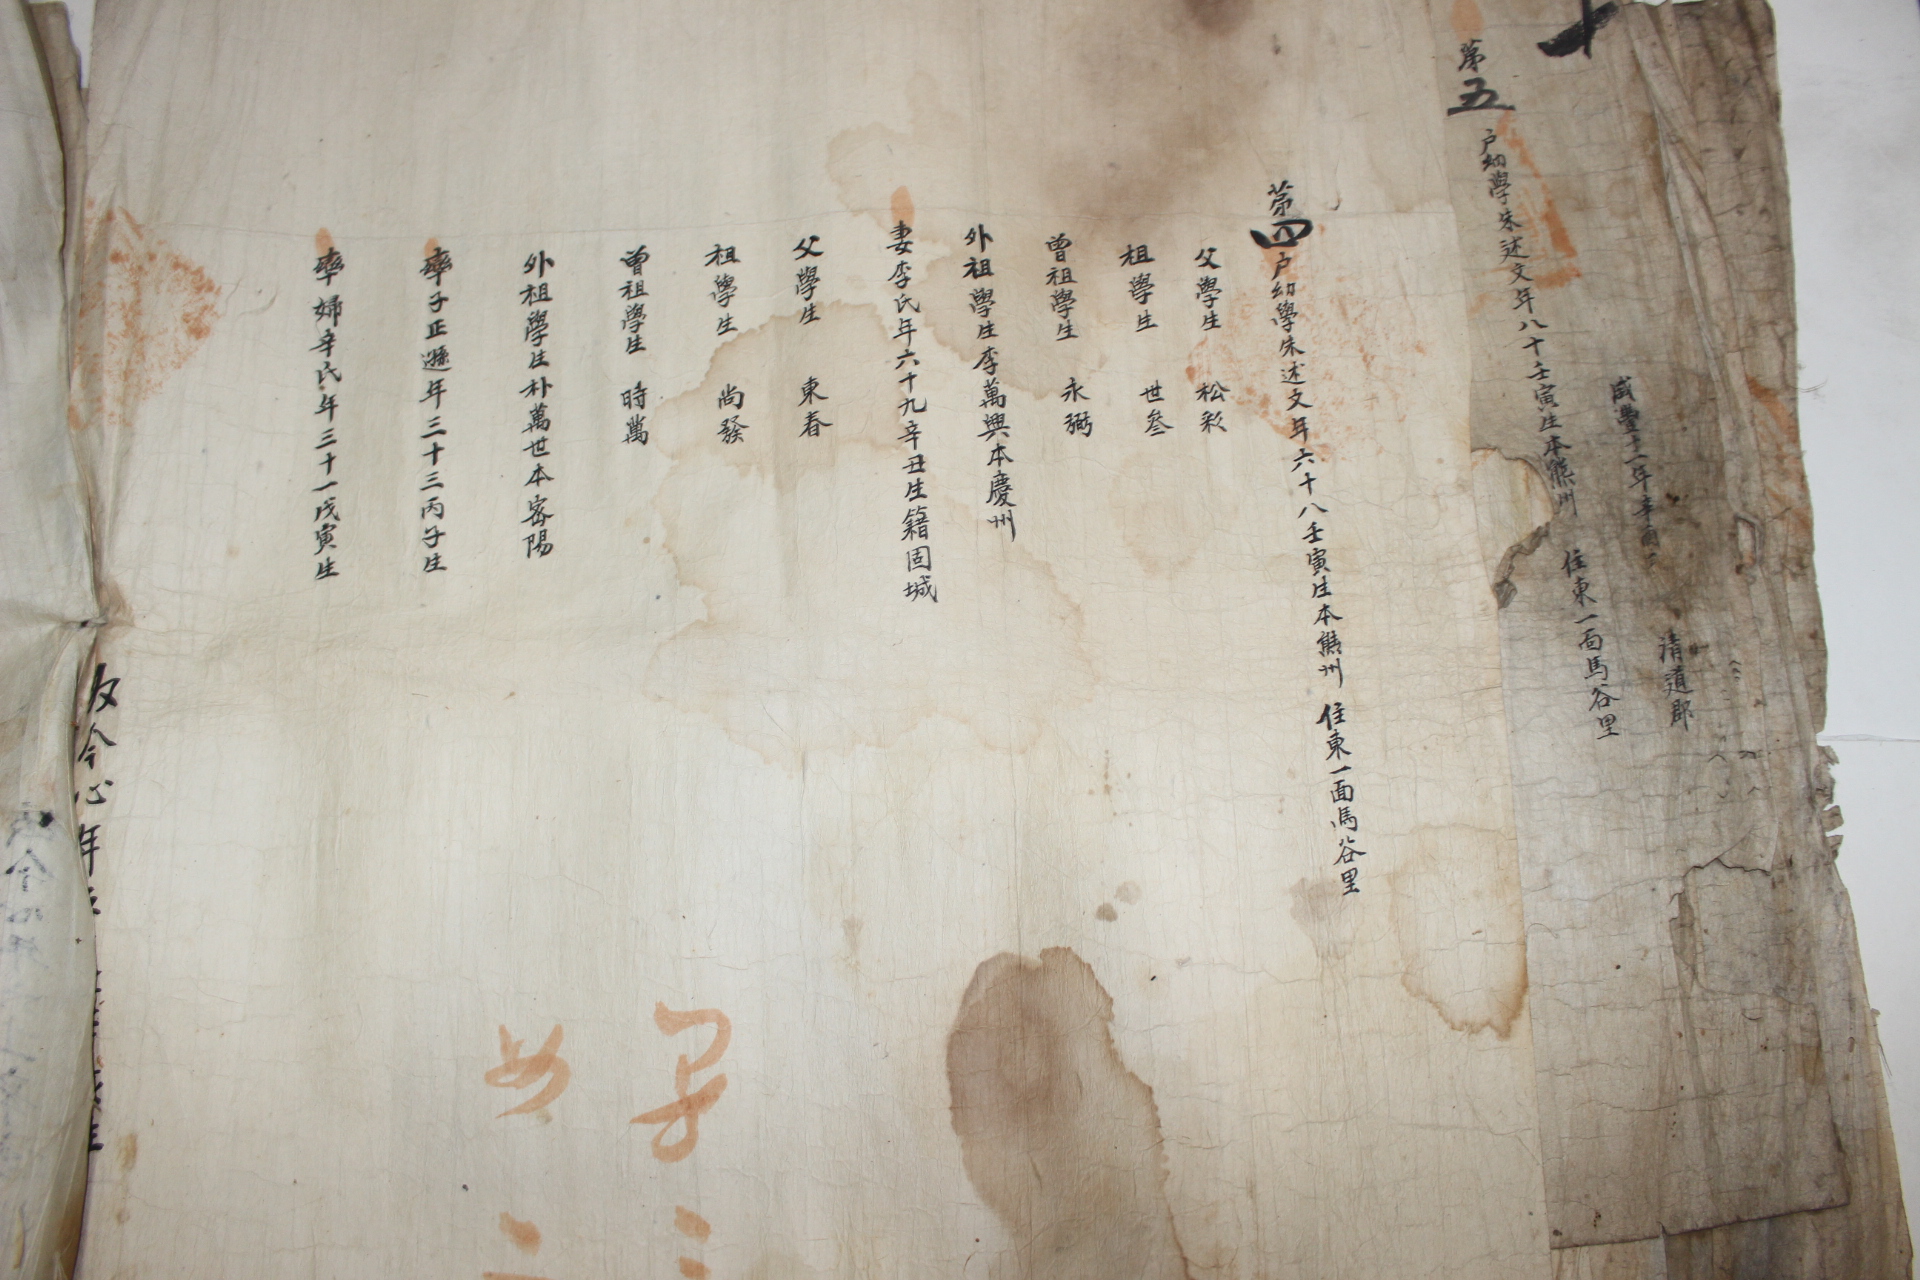 咸豐十一年辛酉
清道郡
第五 戶幼學朱述文年八十壬寅生本熊州 住東一面馬谷里
第四戶幼學朱述文年六十八壬寅生本熊州 住東一面馬谷里
父學生 松彩
祖學生 世參
曾祖學生 永弼
外祖學生李萬興本慶州
妻李氏年六十九辛丑生籍固城
父學生 東春
祖學生 尚發
曾祖學生 時萬
外祖學生朴萬世本密陽
率子正遜年三十三丙子生
率婦辛氏年三十一戊寅生
男子
女
今心年